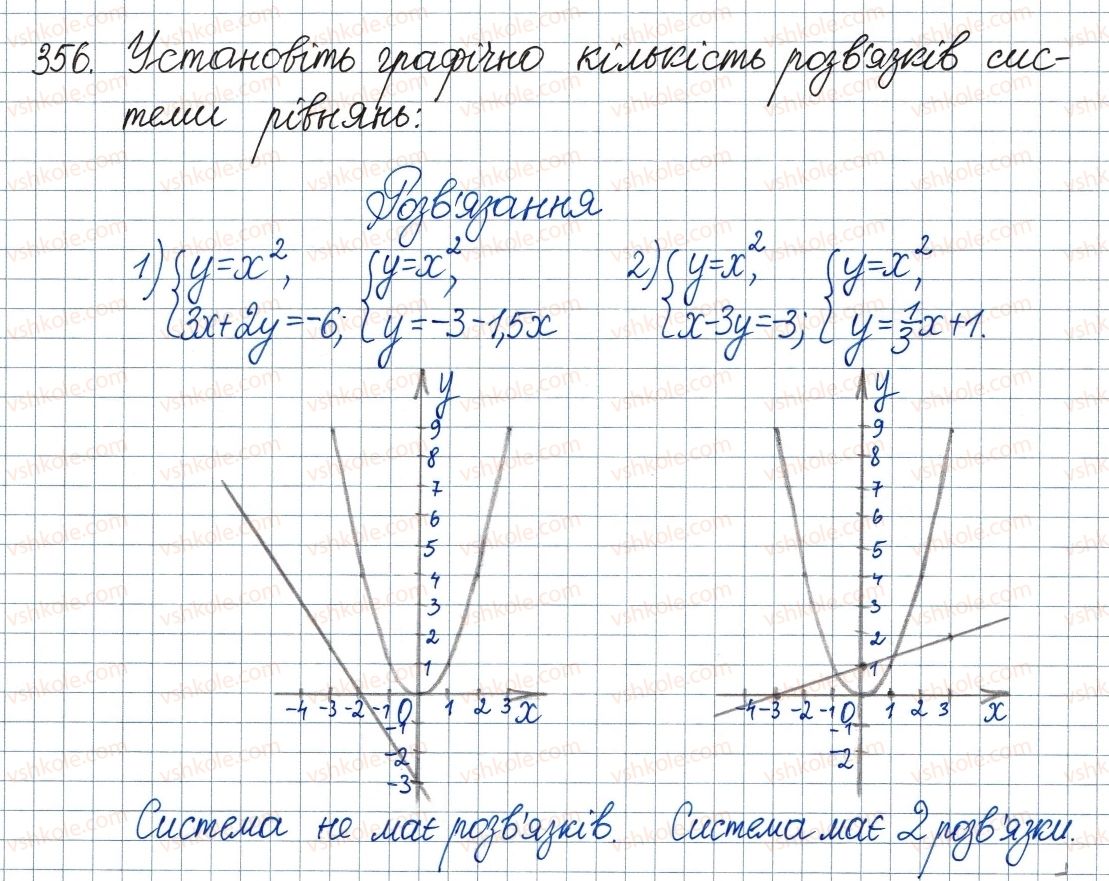 356. Установіть графічно кількість розв'язків сис-
теми рівнянь:
Розв'язання
1) { y=x², 3x+2y=-6; { y=x², y=-3-1,5x
2) { y=x², x-3y=-3; { y=x², y=1/3x+1.
y
9
8
7
6
5
4
3
2
1
-4 -3 -2 -1 0 1 2 3 x
-1
-2
-3
y
9
8
7
6
5
4
3
2
1
-4 -3 -2 -1 0 1 2 3 x
-1
-2
Система не має розв'язків.
Система має 2 розв'язки.
vshkole.com